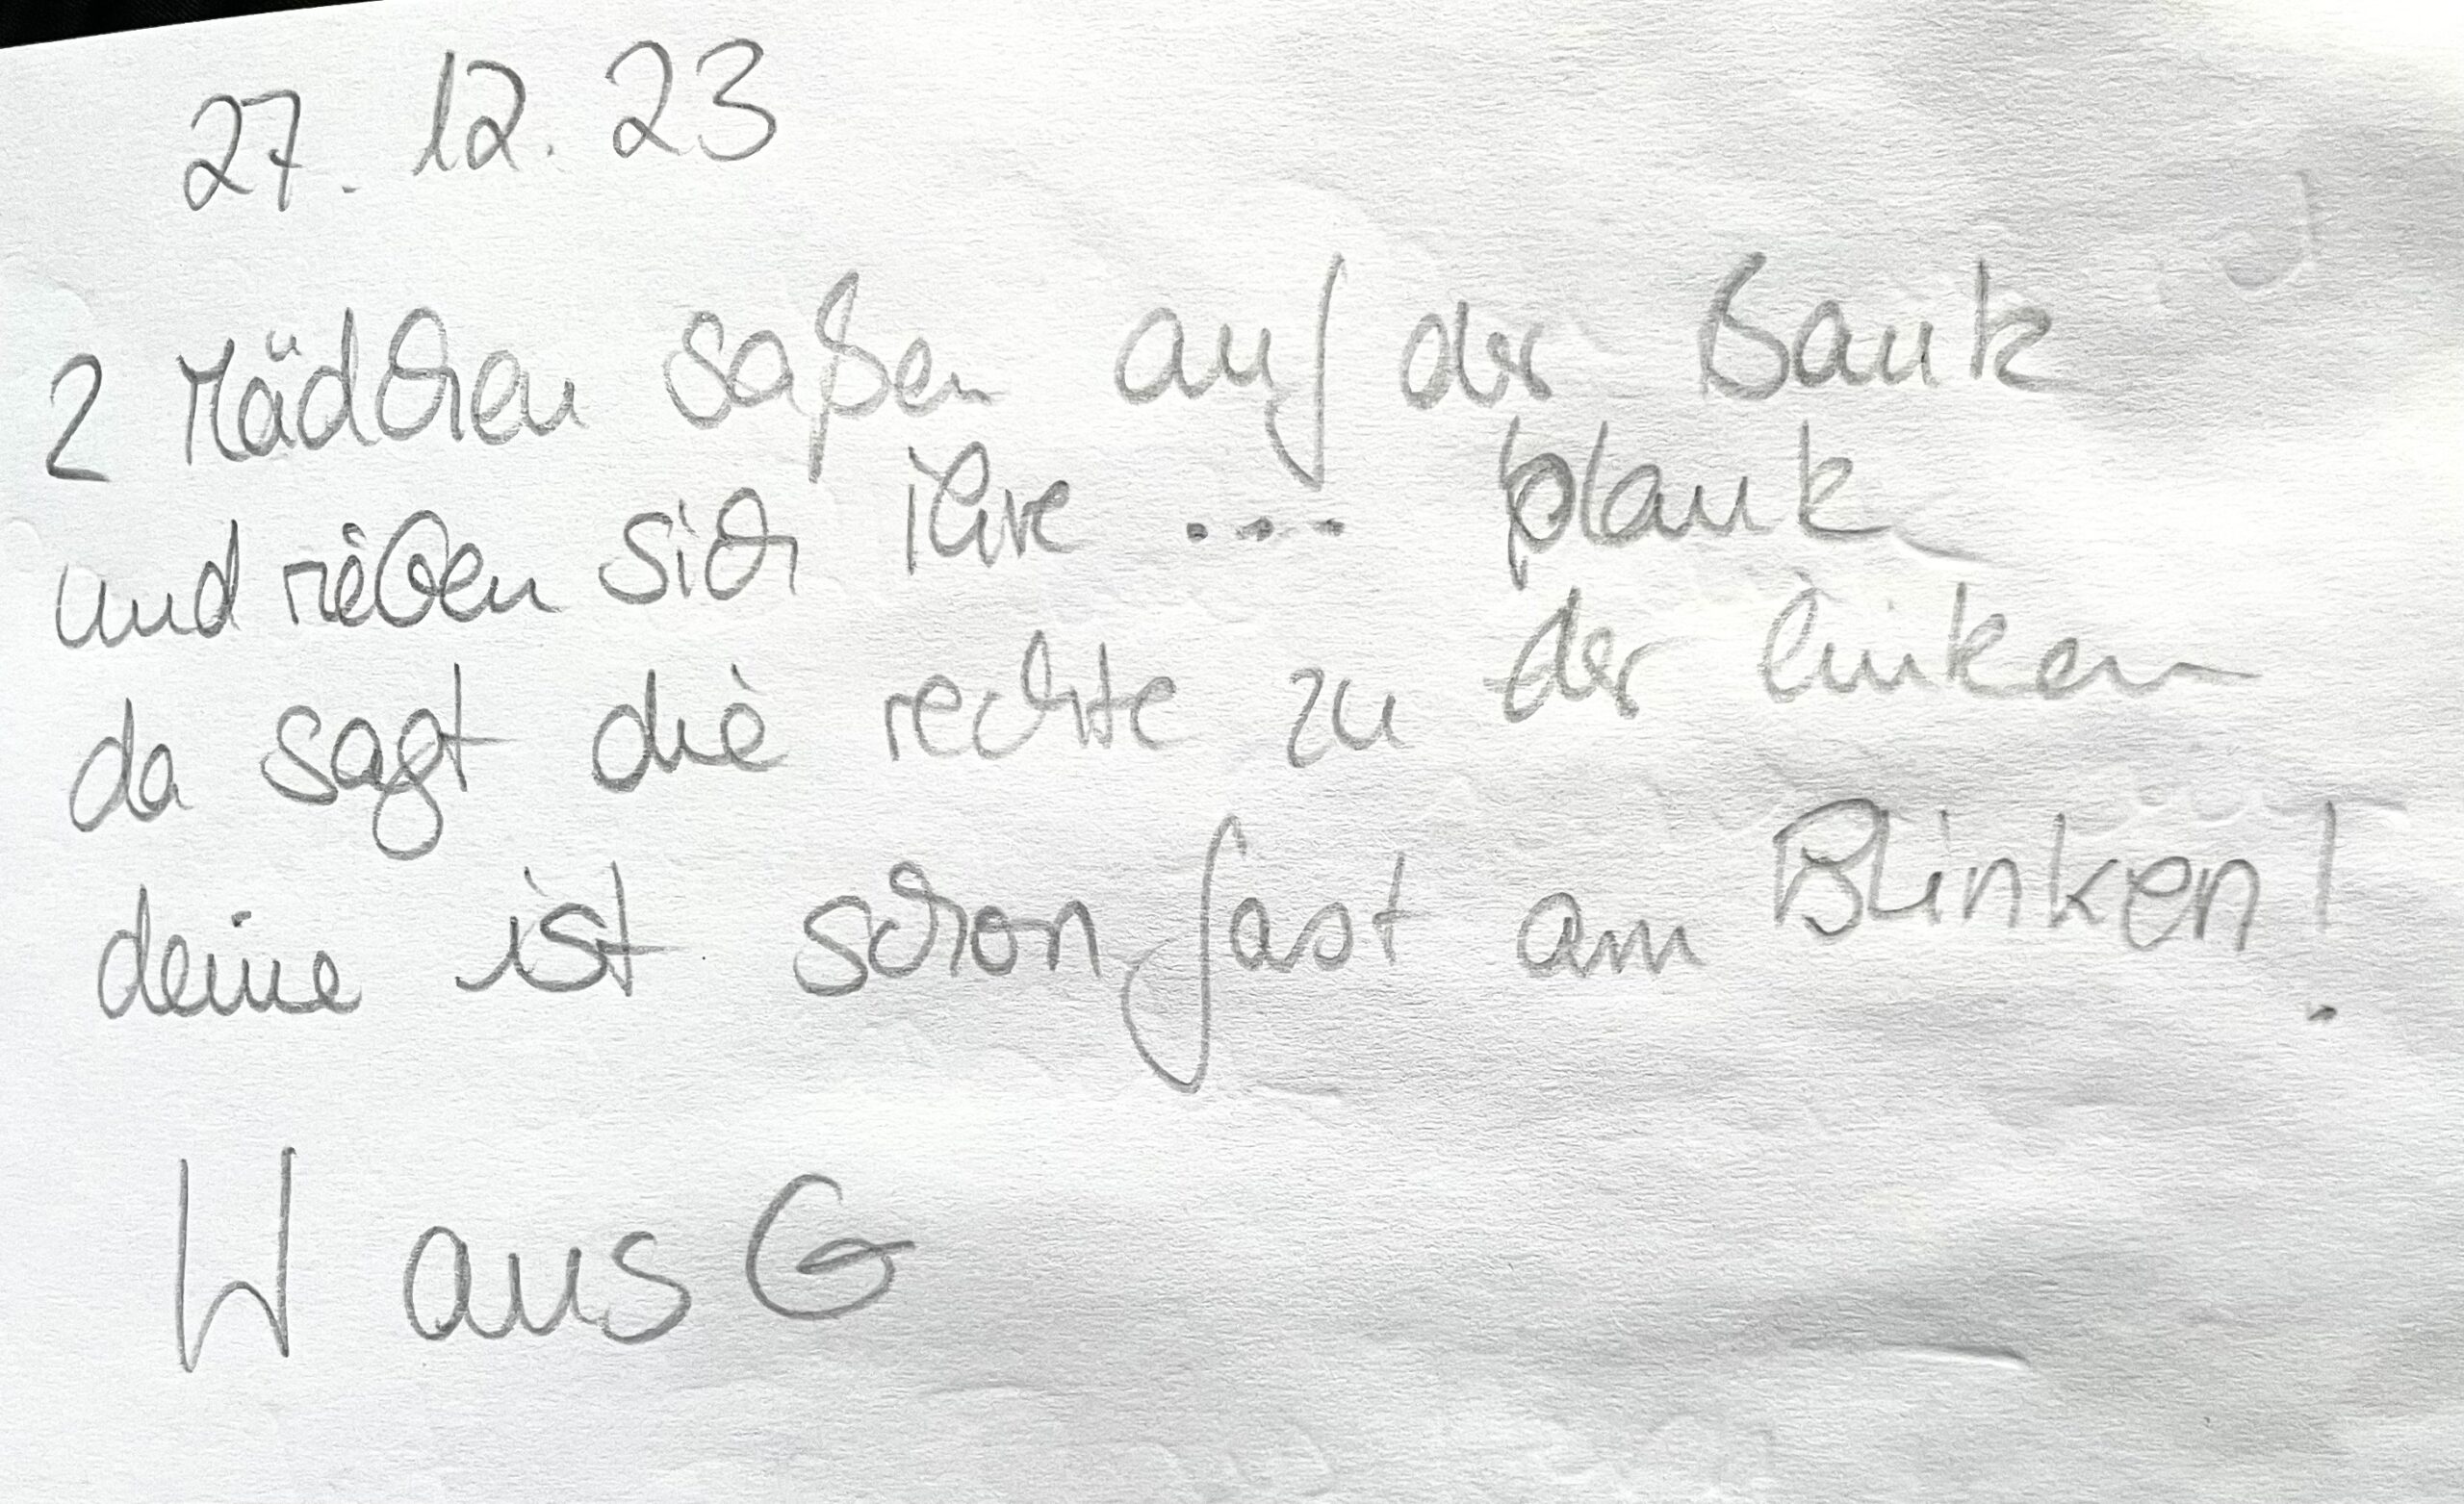 27.12.23
2 Mädchen saßen auf der Bank
und rieben sich ihre .... plank
da sagt die rechte zu der linken
deine ist schon fast am Blinken!
W aus G